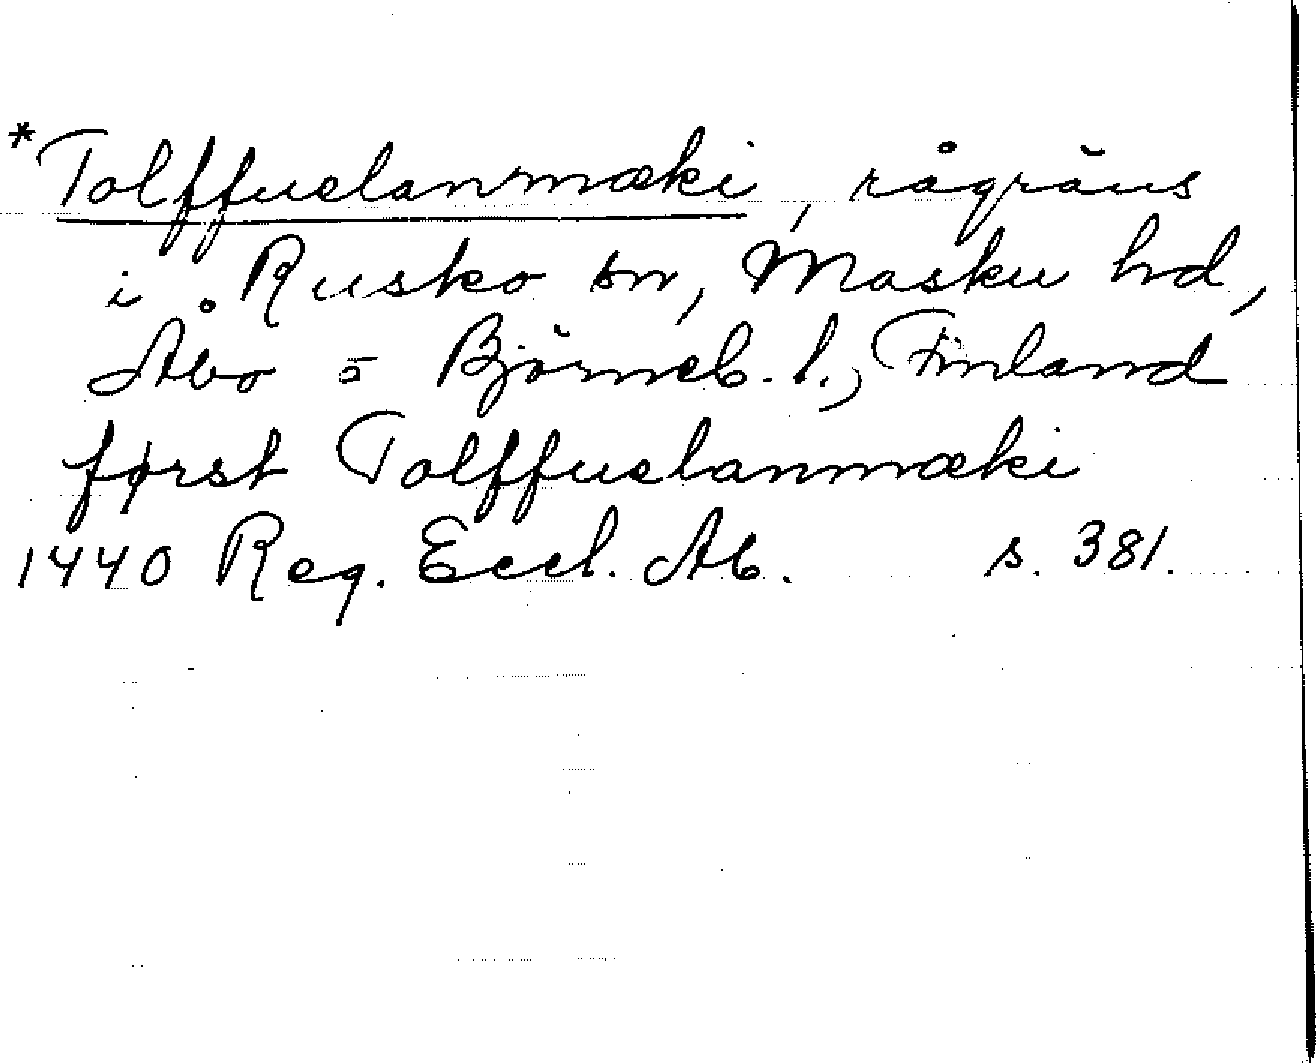 *Tolffuelanmæki, rågräns
i Rusko sn, Masku hd,
Åbo o Björneb. l., Finland
først Tolffuelanmæki
1440 Reg. Eccl. Ab. s. 381.